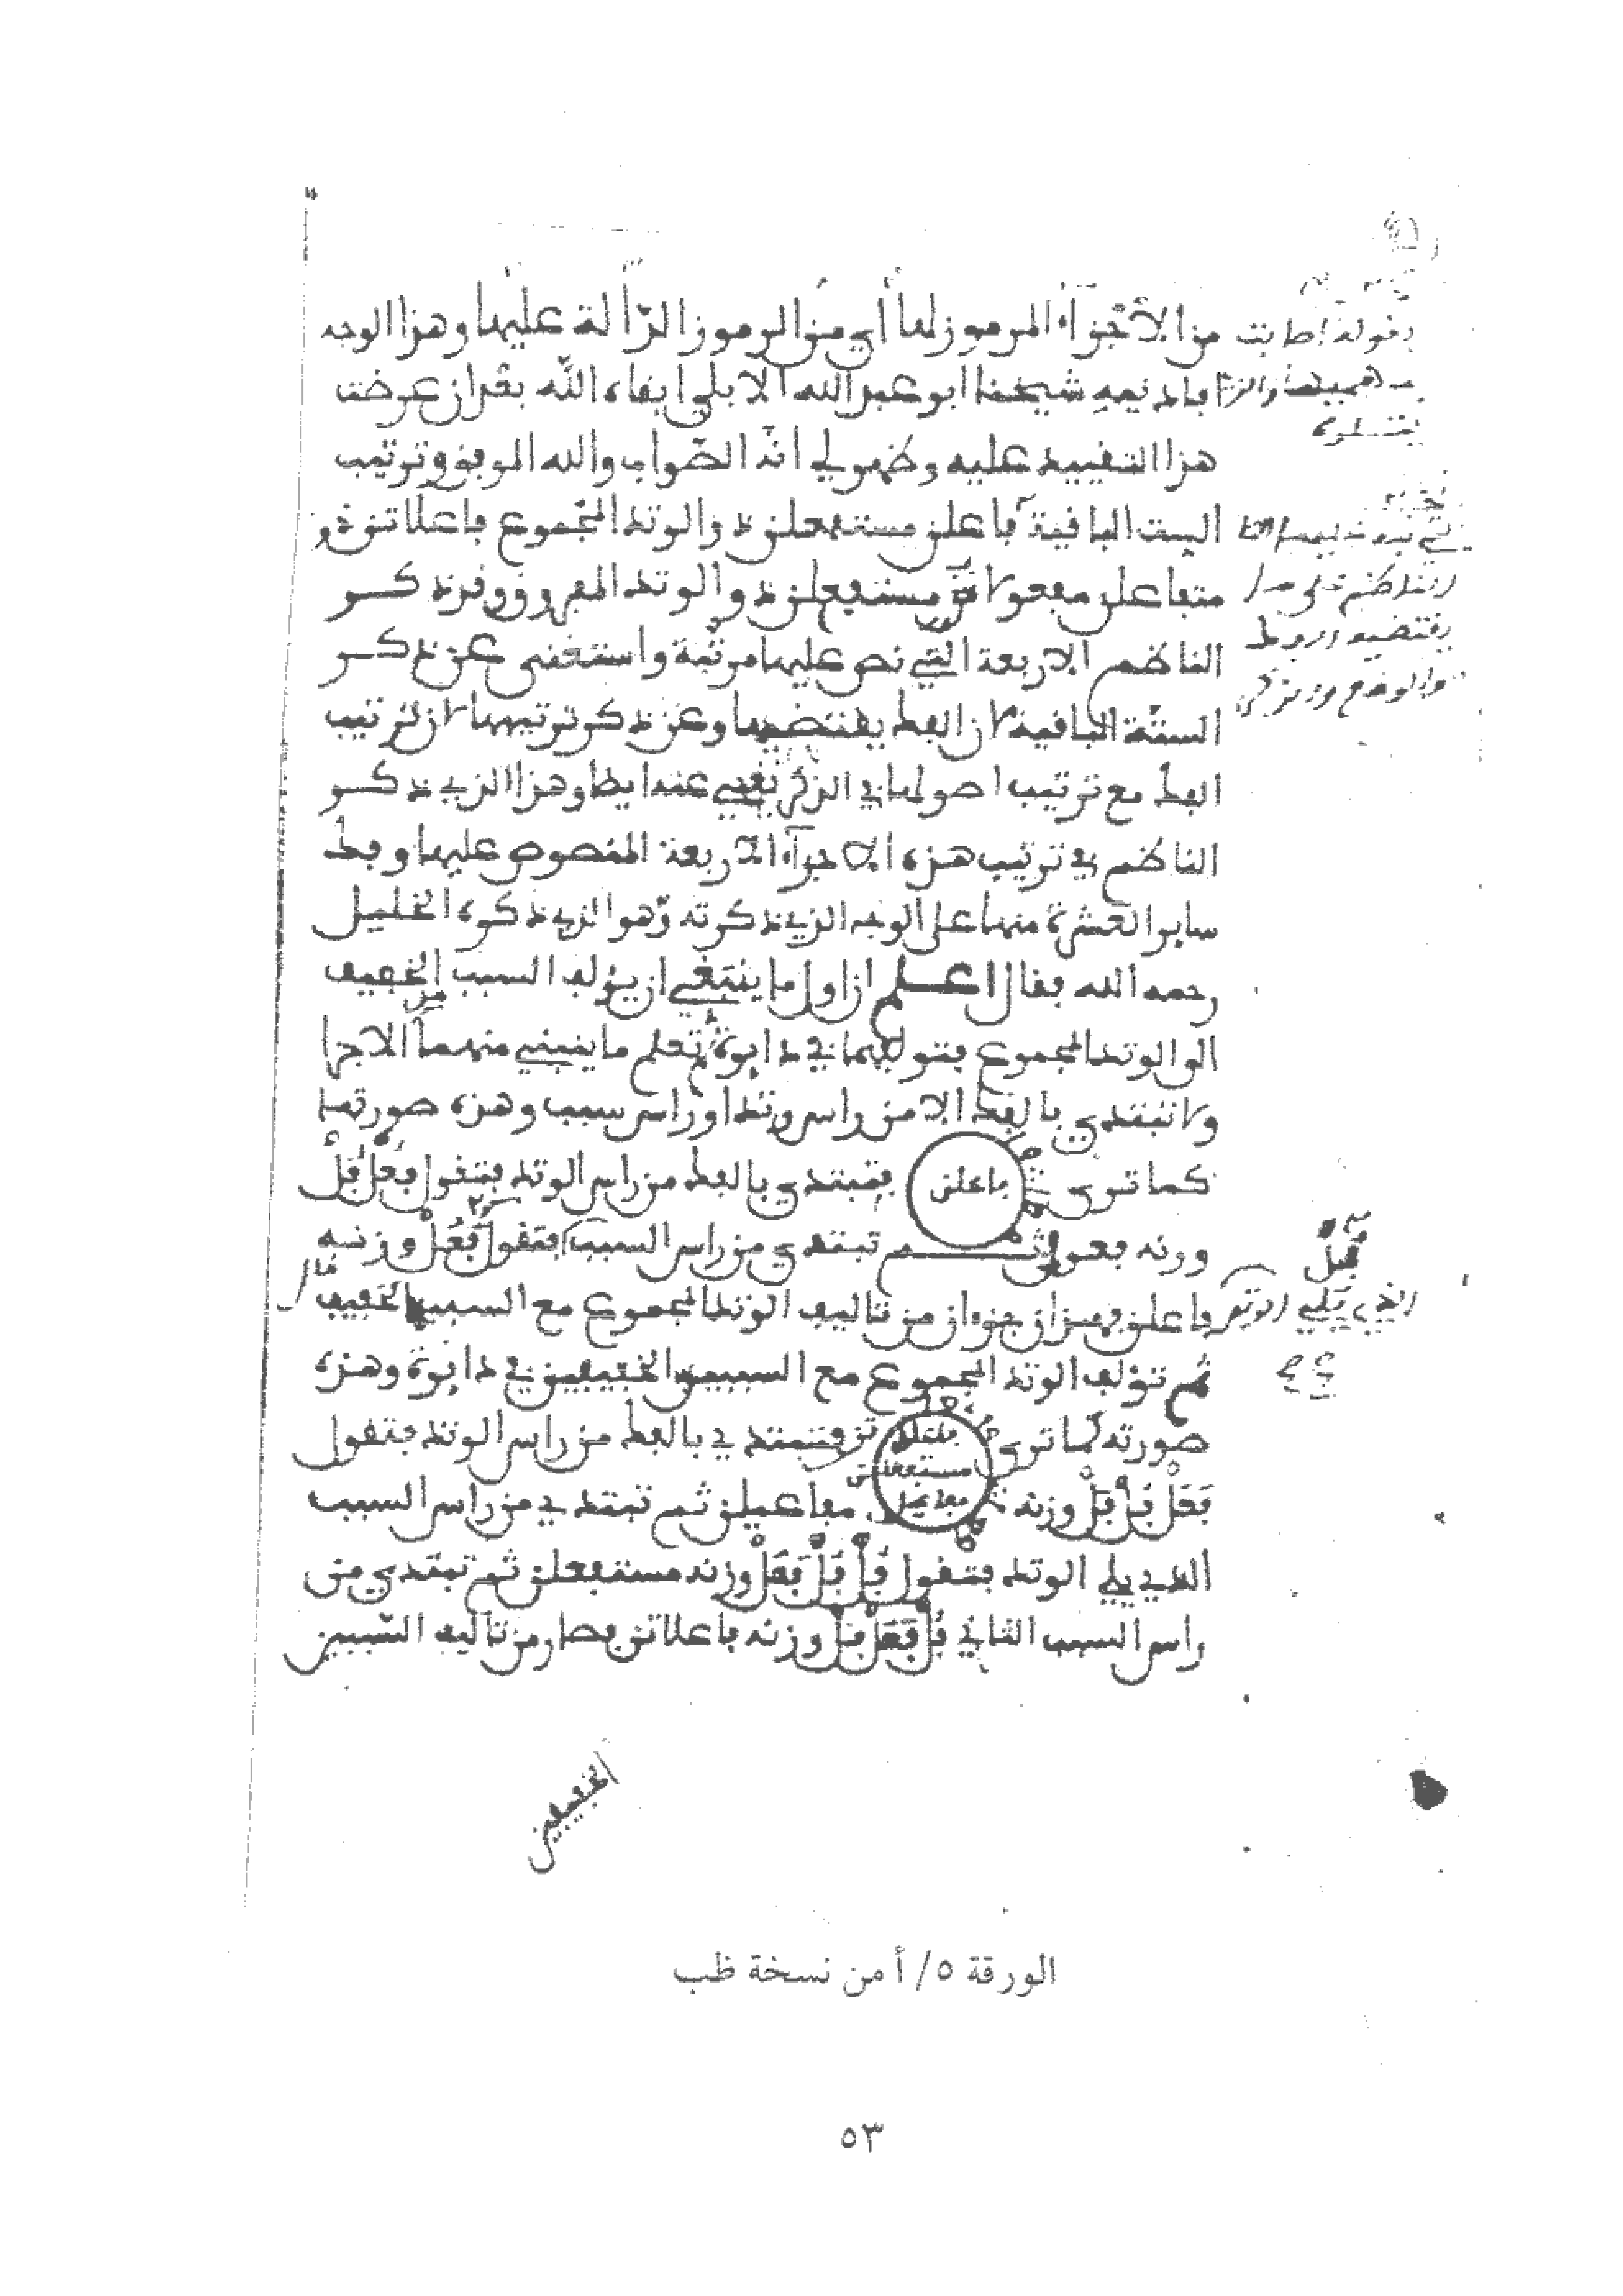 من الأجزاء المرموز لها أي من الرموز الدّالة عليها وهذا الوجه
أفادنيه شيخنا ابو عبد الله الابلي ابقاه اللّه بعد ان عرضت
هذا التقييد عليه وظهر لي انّه الصّواب والله الموفق وترتيب
الست الباقية فاعلن مستفعلن ذو الوتد المجموع فاعلاتن ذو
متفاعلن مفعولات مستفعلن ذو الوتد المفروق وقد ذكر
الناظم الاربعة التي نص عليها مرتّبة واستغنى عن ذكر
الستّة الباقية لان الفك يقتضيها وعن ذكر ترتيبها لان ترتيب
الفك مع ترتيب اصولها في الذكر يغني عنه ايضا وهذا الذي ذكر
الناظم في ترتيب هذه الاجزاء الاربعة المنصوص عليها وفك
ساير العشرة منها على الوجه الذي ذكرته وهو الذي ذكره الخليل
رحمه الله فقال اعلم ان اول ما ينبغي ان يؤلف السبب الخفيف
الى الوتد المجموع فتولفهما في دايرة ثم تعلم ما ينبني منهما من الاجزا
ولا تبتدي بالفك الا من راس وتد او راس سبب وهذه صورتها
كما ترى فاعلن فتبتدي بالفك من راس الوتد فتقول فَعَلْ فَلْ
وزنه فعولن ثم تبتدي من راس السبب فتقول فَلْ فَعَلْ وزنه
فاعلن فهذان جزءان من تاليف الوتد المجموع مع السبب الخفيف قال
ثم تؤلف الوتد المجموع مع السببين الخفيفين في دايرة وهذه
صورته كما ترى فتبتدي بالفك من راس الوتد فتقول
فَعَلْ فَلْ فَلْ وزنه مفاعيلن ثم تبتدي من راس السبب
الذي يلي الوتد فتقول فَلْ فَلْ فَعَلْ وزنه مستفعلن ثم تبتدي من
راس السبب الثاني فَلْ فَعَلْ فَلْ وزنه فاعلاتن فصار من تاليف السّببين
الخفيفين
الورقة ٥/ أ من نسخة ظب
٥٣